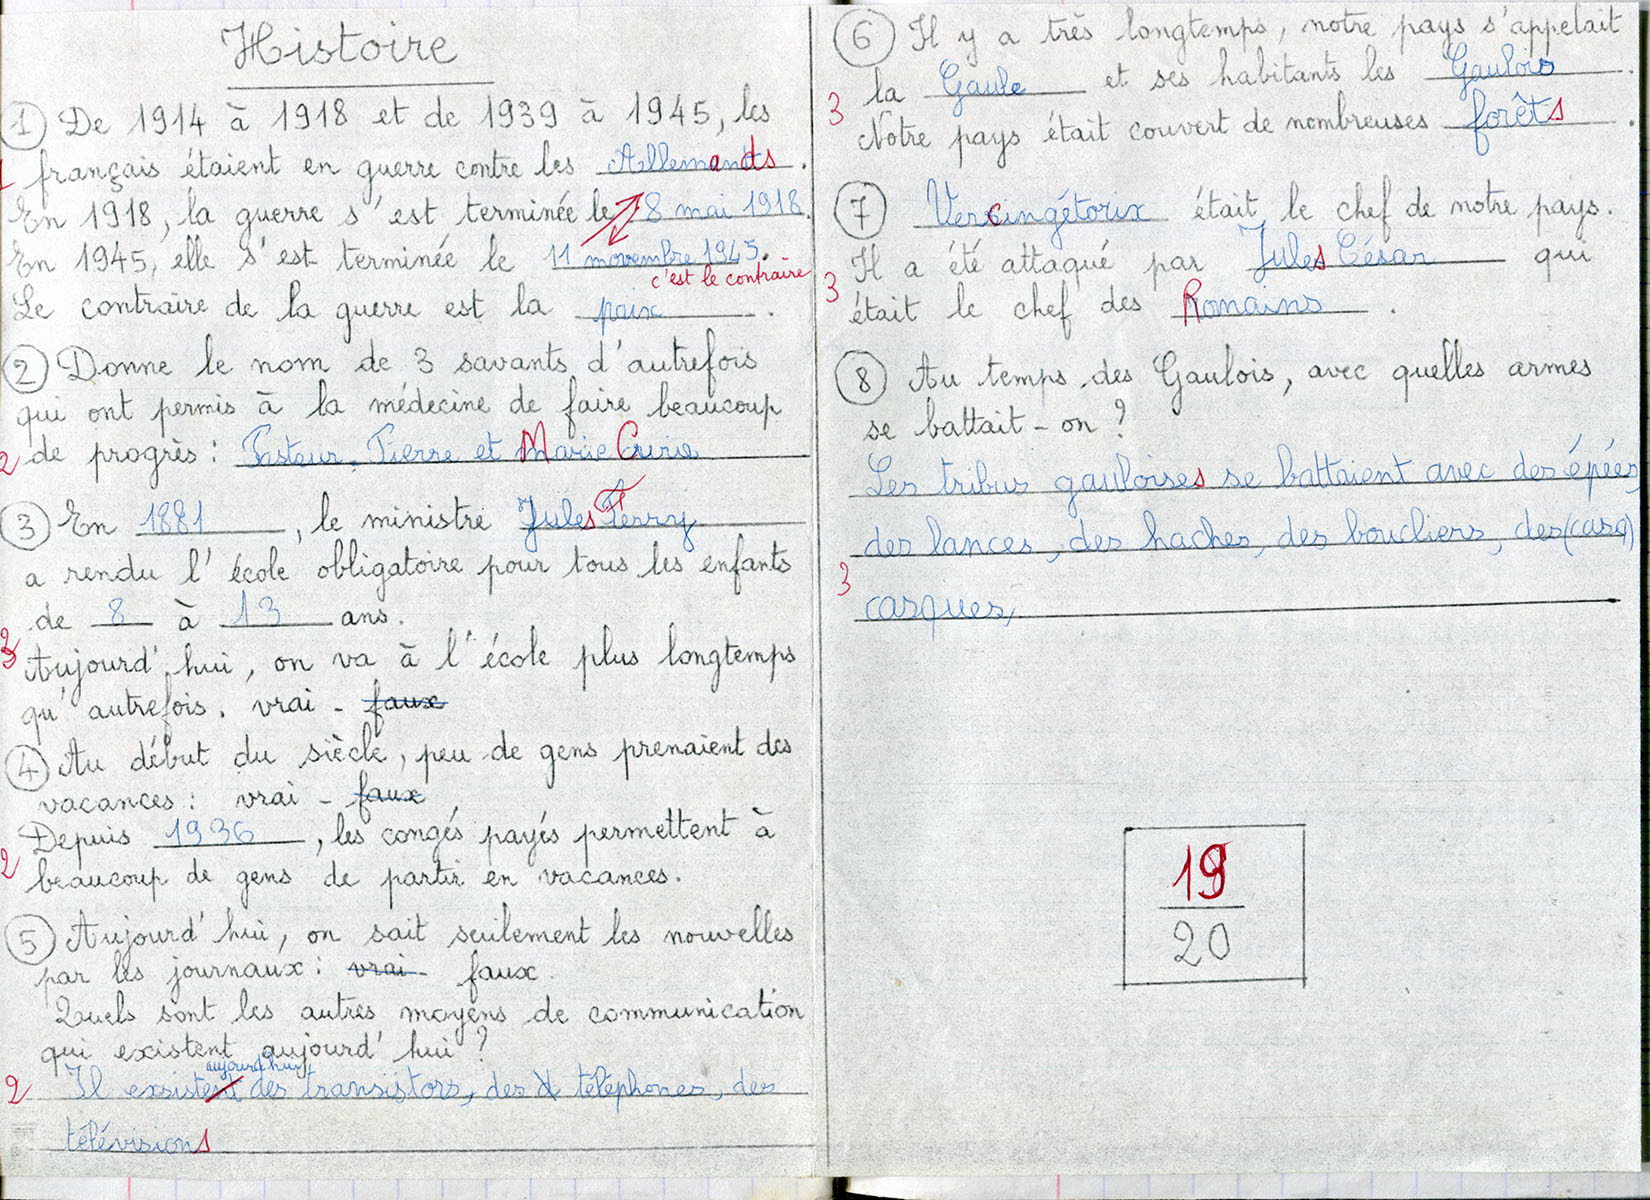 Histoire
① De 1914 à 1918 et de 1939 à 1945, les
1 français étaient en guerre contre les Allemands.
En 1918, la guerre s'est terminée le 8 mai 1918.
En 1945, elle s'est terminée le 11 novembre 1945.
c'est le contraire
Le contraire de la guerre est la paix.
② Donne le nom de 3 savants d'autrefois
qui ont permis à la médecine de faire beaucoup
2 de progrès : Pasteur, Pierre et Marie Curie
③ En 1881, le ministre Jules Ferry
a rendu l'école obligatoire pour tous les enfants
de 8 à 13 ans.
3 Aujourd'hui, on va à l'école plus longtemps
qu'autrefois. vrai - faux
④ Au début du siècle, peu de gens prenaient des
vacances : vrai - faux
Depuis 1936, les congés payés permettent à
2 beaucoup de gens de partir en vacances.
⑤ Aujourd'hui, on sait seulement les nouvelles
par les journaux : vrai - faux.
Quels sont les autres moyens de communication
qui existent aujourd'hui ?
aujourd'hui
2 Il exsistent des transistors, des téléphones, des
télévisions
⑥ Il y a très longtemps, notre pays s'appelait
la Gaule et ses habitants les Gaulois.
3 Notre pays était couvert de nombreuses forêts.
⑦ Vercingétorix était le chef de notre pays.
3 Il a été attaqué par Jules César qui
était le chef des Romains.
⑧ Au temps des Gaulois, avec quelles armes
se battait-on ?
Les tribus gauloises se battaient avec des épées,
des lances, des haches, des boucliers, des (casq)
3 casques,
19
20